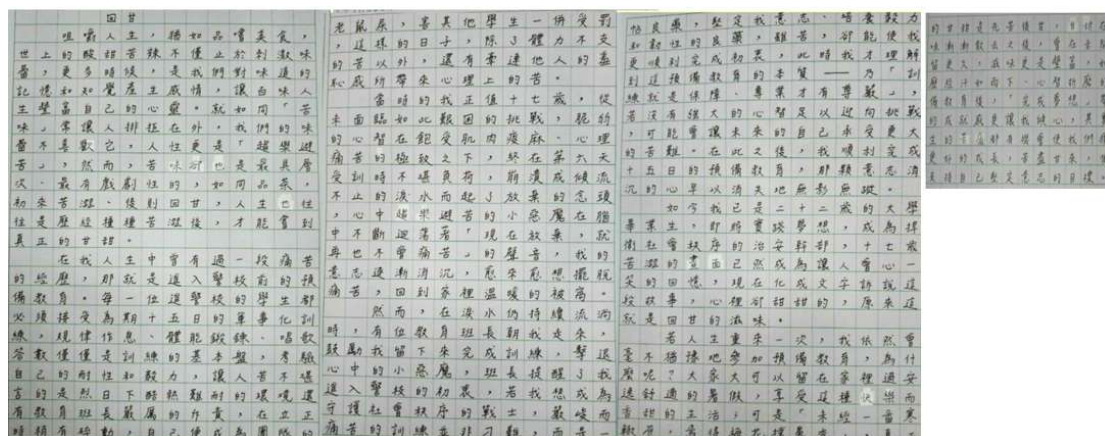 回甘
咀嚼人生，猶如品嚐美食，
世上的酸甜苦辣不僅止於刺激味
蕾，更多時候，是我們對味道的
記憶和知覺產生感情，讓白味人
生豐富自己的心靈。就如同「苦
味」常讓人排拒在外，我們的味
蕾不喜歡它，人性更是「趨樂避
苦」，然而，苦味卻也是最具層
次、最有戲劇性的，如同品茶，
初來苦澀、後則回甘，人生也往
往是歷經種種苦澀後，才能嘗到
真正的甘甜。
在我人生中曾有過一段痛苦
的經歷，那就是進入警校前的預
備教育。每一位進警校的學生都
必須接受為期十五日的軍事化訓
練，規律作息、體能鍛鍊、唱歌
答數僅僅是訓練的基本盤，考驗
自己的耐性和毅力，讓人苦不堪
言的是烈日下酷熱難耐的環境還
有教育班長嚴厲的斥責，在立正
時稍有移動，自己便成為團隊的
老鼠屎，害其他學生一併受罰
，這樣的日子，除了體力不支
的苦以外，還有牽連他人的羞
恥感所帶來心理上的苦。
當時的我正值十七歲，從
未面臨如此艱困的挑戰，脆弱
的心智在飽受肌肉痠麻、心理
痛苦的極致之下，終在第六天
受訓時不堪負荷，崩潰成傾流
不止的淚水而起了放棄的念頭
，心中趨樂避苦的小惡魔在腦
中不斷迴蕩著「現在放棄，就
再也不會痛苦」的聲音，我的
意志逐漸消沉，愈來愈想擺脫
痛苦，回到家裡溫暖的被窩。
然而，在淚水仍持續流淌
時，有位教育班長朝我走來，
鼓勵我留下來完成訓練，擊退
心中的小惡魔，班長提醒了我
進入警校的初衷，若我想成為
守護社會秩序的戰士，嚴峻而
痛苦的訓練並非刁難，而是一
帖良藥，堅定我意志、培養毅力
和韌性的良藥，雖苦，卻能使我
更順利完成初衷，此時我才理解
到這預備教育的本質——乃「訓
練就是保障、專業才有尊嚴」，
若沒有強大的心智足以迎向挑戰
，可能會讓未來的自己承受更大
的苦難。在此之後，我順利完成
十五日的預備教育，那顆意志消
沉的心早以消失地無影無蹤。
如今我已是二十二歲的大學
畢業生，即將實踐夢想，成為捍
衛社會秩序的治安幹部，十七歲
苦澀的畫面已然成為讓人會心一
笑的回憶，現在化成文字訴說這
段故事，心裡卻甜甜的，原來這
就是回甘的滋味。
若人生重來一次，我依然會
毫不猶豫地參加預備教育，為什
麼呢？大家大可以留在家裡過安
逸舒適的暑假，享受這種快樂而
甘甜的生活，可是「未經一番寒
的甘甜是先苦後甘，
味漸漸散去後，
留更久，滋味更是豐富，
歷經汗如雨下、心智折磨的
備教育後，「完成夢想」帶
的成就感更讓我暖心，其實
生的苦澀都有機會使我們
更好的成長，苦盡甘來，